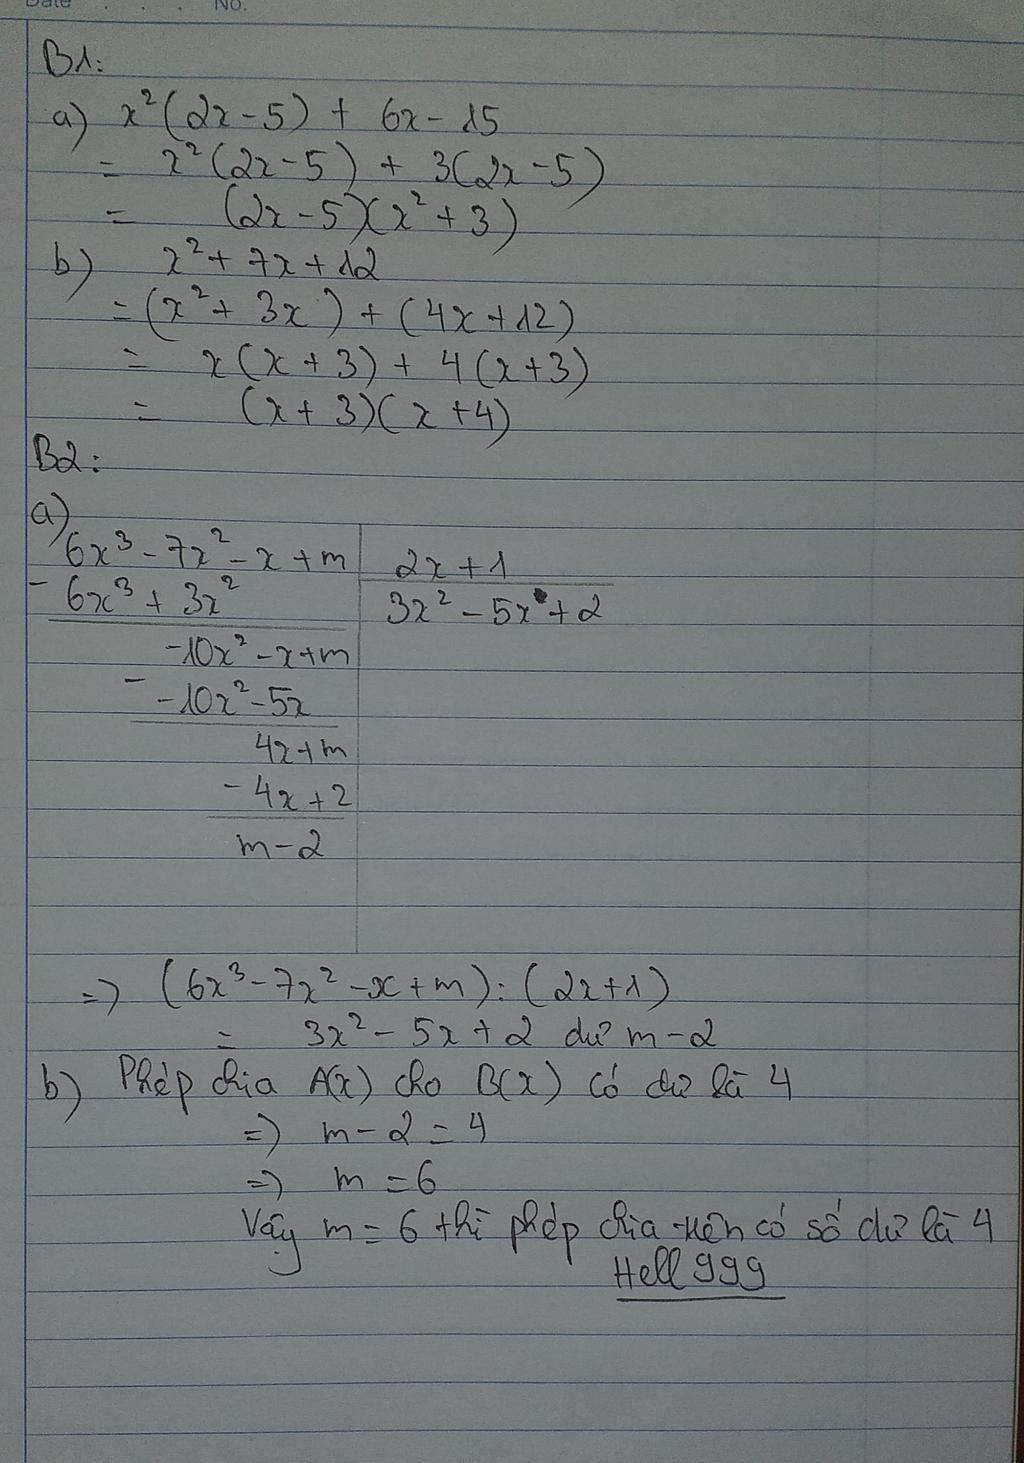 Date . . . No.
B1:
a) x²(2x-5) + 6x - 15
= x²(2x-5) + 3(2x-5)
= (2x-5)(x²+3)
b) x² + 7x + 12
= (x² + 3x) + (4x+12)
= x(x+3) + 4(x+3)
= (x+3)(x+4)
B2:
a)
6x³ - 7x² - x + m 2x + 1
- 6x³ + 3x² 3x² - 5x + 2
-10x² - x + m
- -10x² - 5x
4x + m
- 4x + 2
m - 2
=> (6x³ - 7x² - x + m) : (2x+1)
= 3x² - 5x + 2 dư m - 2
b) Phép chia A(x) cho B(x) có dư là 4
=> m - 2 = 4
=> m = 6
Vậy m = 6 thì phép chia trên có số dư là 4
Hell 999